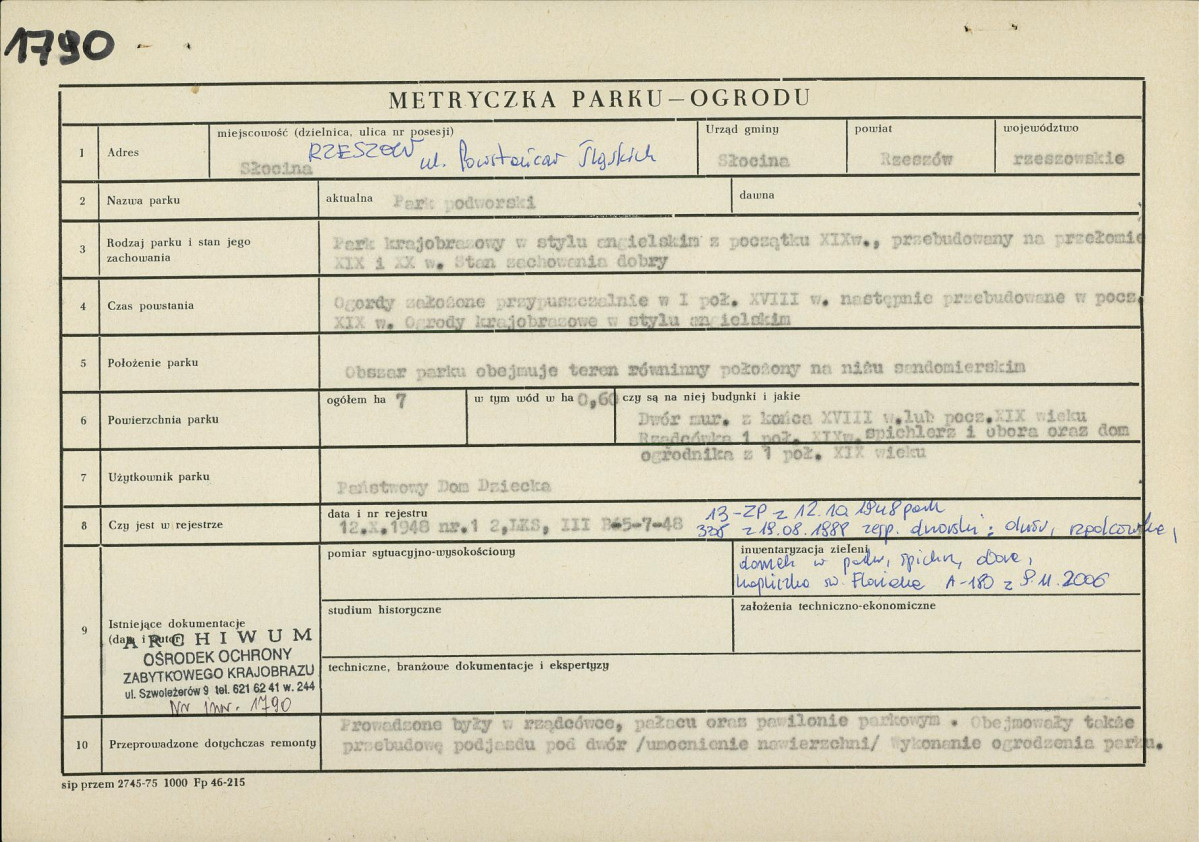 1790
METRYCZKA PARKU – OGRODU
1 Adres
miejscowość (dzielnica, ulica nr posesji)
Słocina RZESZÓW ul. Powstańców Śląskich
Urząd gminy
Słocina
powiat
Rzeszów
województwo
rzeszowskie
2 Nazwa parku
aktualna Park podworski
dawna
3 Rodzaj parku i stan jego
zachowania
Park krajobrazowy w stylu angielskim z początku XIXw., przebudowany na przełomie
XIX i XX w. Stan zachowania dobry
4 Czas powstania
Ogordy założone przypuszczalnie w I poł. XVIII w. następnie przebudowane w pocz.
XIX w. Ogrody krajobrazowe w stylu angielskim
5 Położenie parku
Obszar parku obejmuje teren równinny położony na niżu sandomierskim
6 Powierzchnia parku
ogółem ha 7
w tym wód w ha 0,60
czy są na niej budynki i jakie
Dwór mur. z końca XVIII w.lub pocz.XIX wieku
Rządcówka 1 poł. XIXw.spichlerz i obora oraz dom
ogrodnika z 1 poł. XIX wieku
7 Użytkownik parku
Państwowy Dom Dziecka
8 Czy jest w rejestrze
data i nr rejestru
12.X.1948 nr.1 2,LKS, III R-5-7-48
13-ZP z 12.10.1948 park
338 z 19.08.1988 zesp. dworski: dwór, rządcówka,
9 Istniejące dokumentacje
(data i autor)
pomiar sytuacyjno-wysokościowy
inwentaryzacja zieleni
domek w parku, spichrz, obora,
kapliczka św. Floriana A-180 z 9.11.2006
studium historyczne
założenia techniczno-ekonomiczne
techniczne, branżowe dokumentacje i ekspertyzy
ARCHIWUM
OŚRODEK OCHRONY
ZABYTKOWEGO KRAJOBRAZU
ul. Szwoleżerów 9 tel. 621 62 41 w. 244
Nr inw. 1790
10 Przeprowadzone dotychczas remonty
Prowadzone były w rządcówce, pałacu oraz pawilonie parkowym . Obejmowały także
przebudowę podjazdu pod dwór /umocnienie nawierzchni/ Wykonanie ogrodzenia parku.
sip przem 2745-75 1000 Fp 46-215